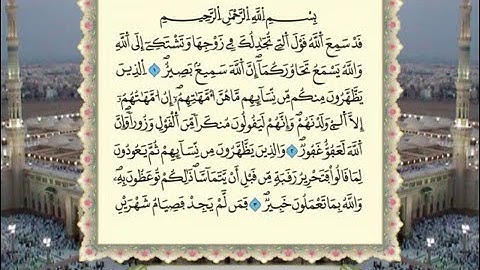 بِسْمِ اللَّهِ الرَّحْمَٰنِ الرَّحِيمِ
قَدْ سَمِعَ اَللَّهُ قَوْلَ اَلتِے تُجَٰدِلُكَ فِے زَوْجِهَا وَتَشْتَكِے إِلَى اَللَّهِ
وَاللَّهُ يَسْمَعُ تَحَاوُرَكُمَا إِنَّ اَللَّهَ سَمِيعُۢ بَصِيرٌ ١ اِلذِينَ
يَظَّهَّرُونَ مِنكُم مِّن نِّسَآئِهِم مَّا هُنَّ أُمَّهَٰتِهِمُۥٓ إِنُ امَّهَٰتُهُمُۥٓ
إِلَّا اَلَّٰٓے وَلَدْنَهُمْ وَإِنَّهُمْ لَيَقُولُونَ مُنكَراً مِّنَ اَلْقَوْلِ وَزُوراً وَإِنَّ
اَللَّهَ لَعَفُوٌّ غَفُورٌ ٢ وَالذِينَ يَظَّهَّرُونَ مِن نِّسَآئِهِمْ ثُمَّ يَعُودُونَ
لِمَا قَالُواْ فَتَحْرِيرُ رَقَبَةٍ مِّن قَبْلِ أَنْ يَّتَمَآسَّا ذَٰلِكُمْ تُوعَظُونَ بِهِۦ
وَاللَّهُ بِمَا تَعْمَلُونَ خَبِيرٌ ٣ فَمَن لَّمْ يَجِدْ فَصِيَامُ شَهْرَيْنِ